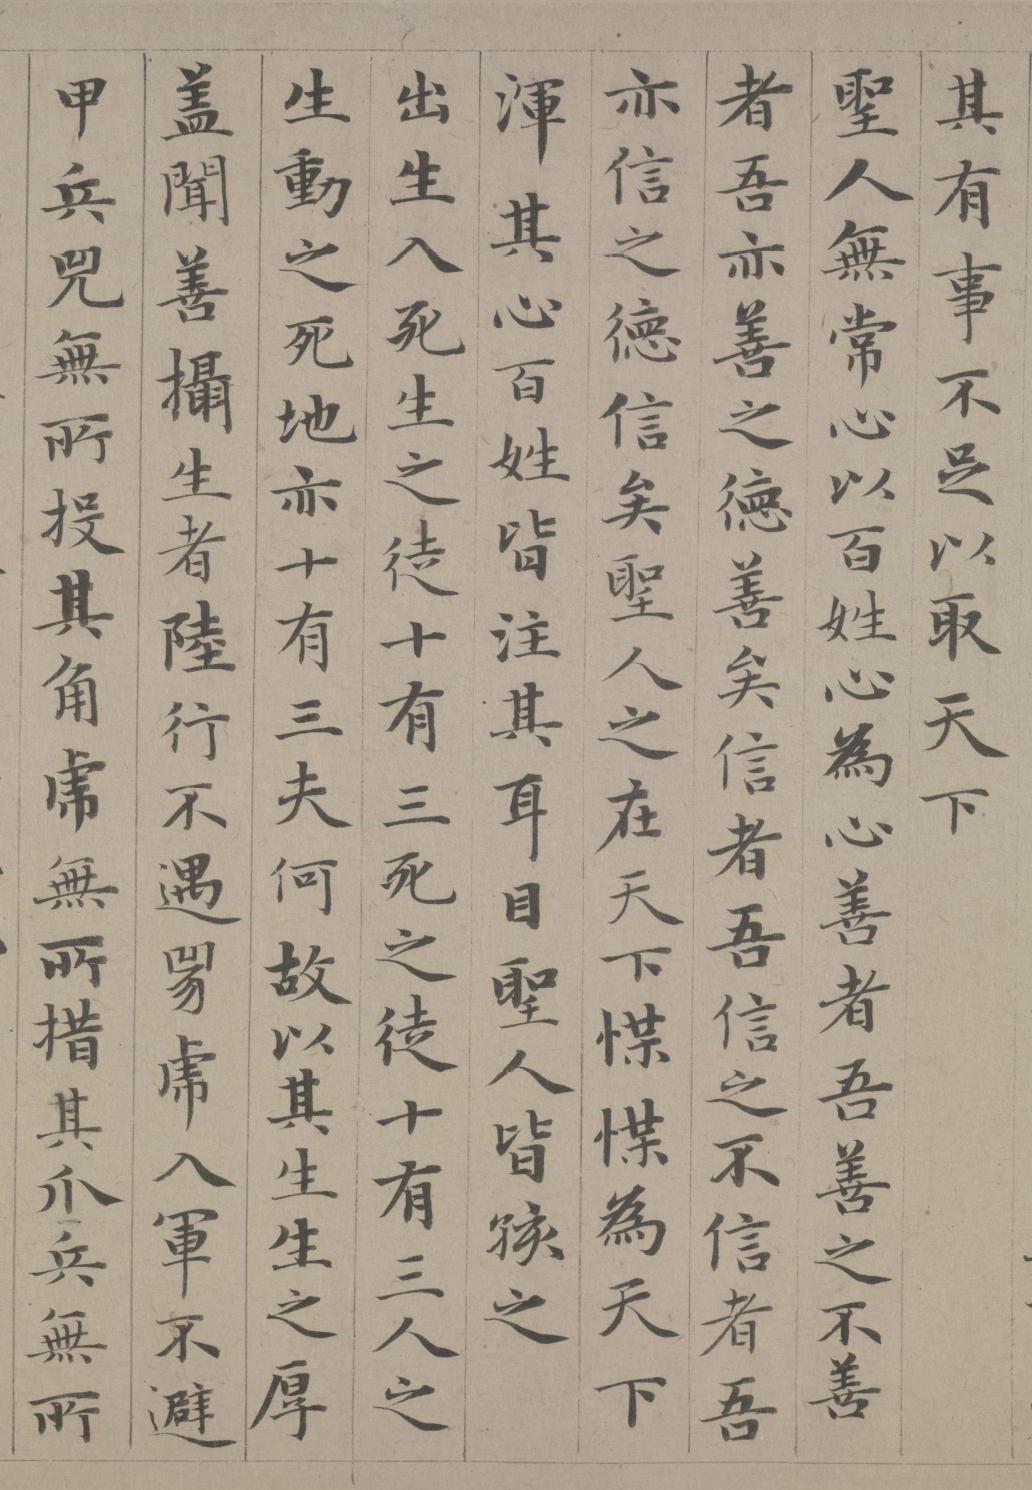 其有事不足以取天下
聖人無常心以百姓心為心善者吾善之不善
者吾亦善之德善矣信者吾信之不信者吾
亦信之德信矣聖人之在天下惵惵為天下
渾其心百姓皆注其耳目聖人皆孩之
出生入死生之徒十有三死之徒十有三人之
生動之死地亦十有三夫何故以其生生之厚
盖聞善攝生者陸行不遇兕虎入軍不避
甲兵兕無所投其角虎無所措其爪兵無所